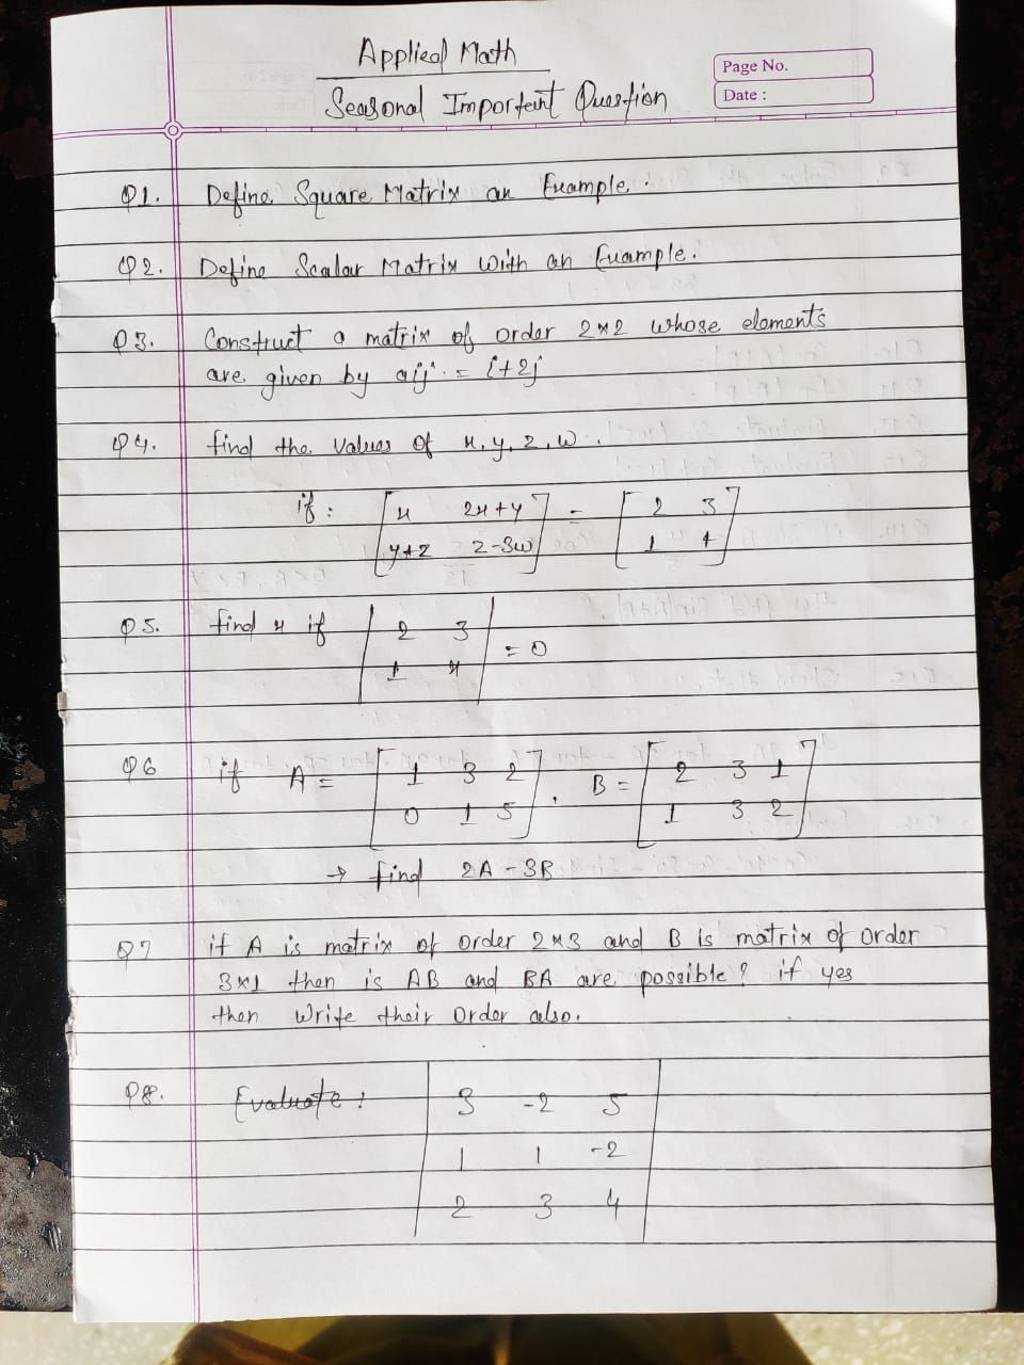 Applied Math
Page No.
Seasonal Important Question
Date :
Q1. Define Square Matrix an Example.
Q2. Define Scalar Matrix with an Example.
Q3. Construct a matrix of order 2×2 whose elements
are given by aij = i+2j
Q4. find the values of x, y, z, w.
if: [x 2x+y] = [2 3]
[y+z z-3w] [1 4]
Q5. find x if |2 3| = 0
|1 x|
Q6 if A = [1 3 2], B = [2 3 1]
[0 1 5] [1 3 2]
→ find 2A - 3B
Q7 if A is matrix of order 2×3 and B is matrix of order
3×1 then is AB and BA are possible? if yes
then write their order also.
Q8. Evaluate: |3 -2 5|
|1 1 -2|
|2 3 4|